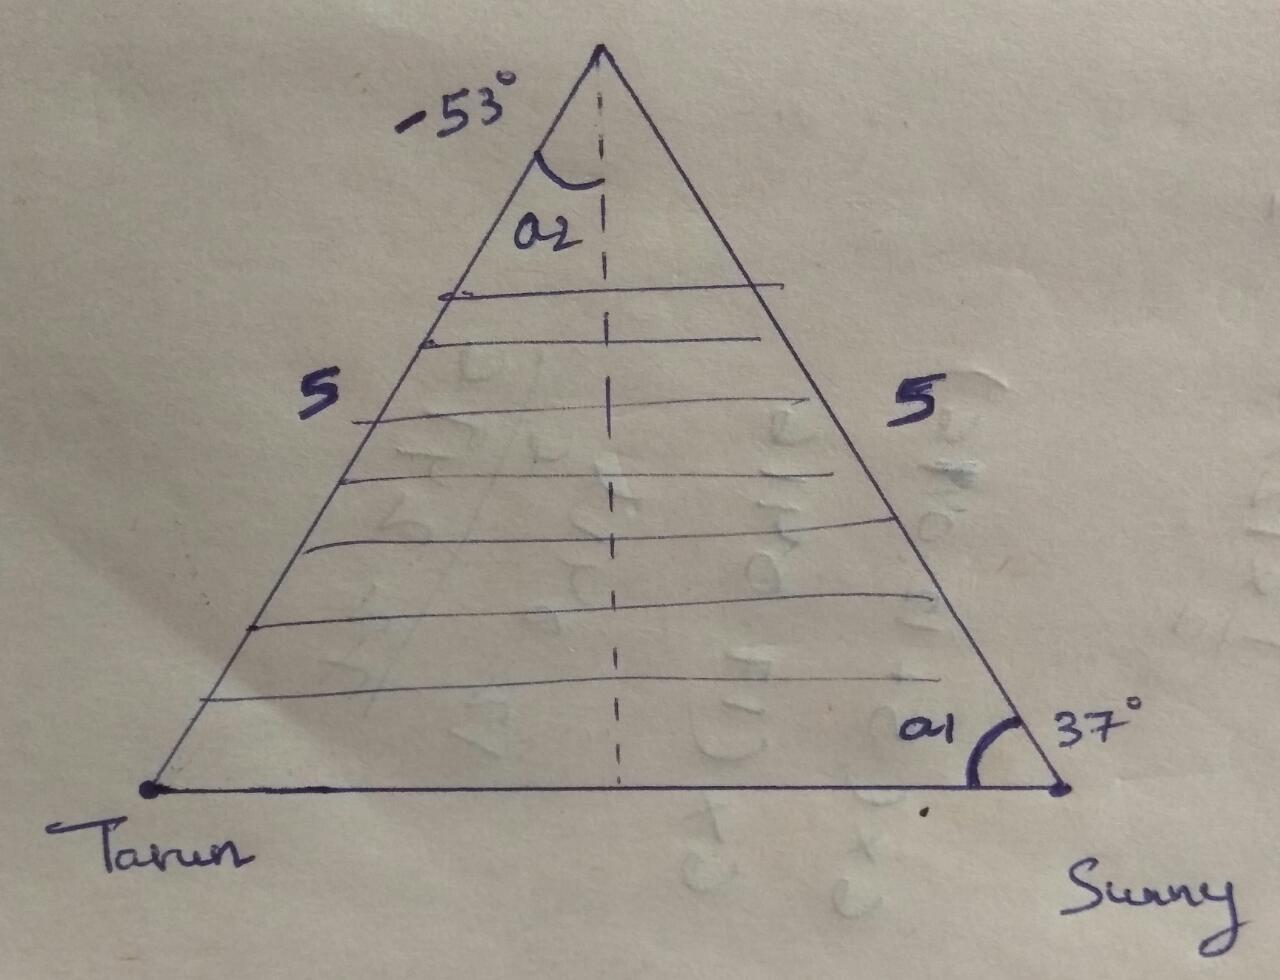 -53°
a2
5
5
a1
37°
Tarun
Sunny